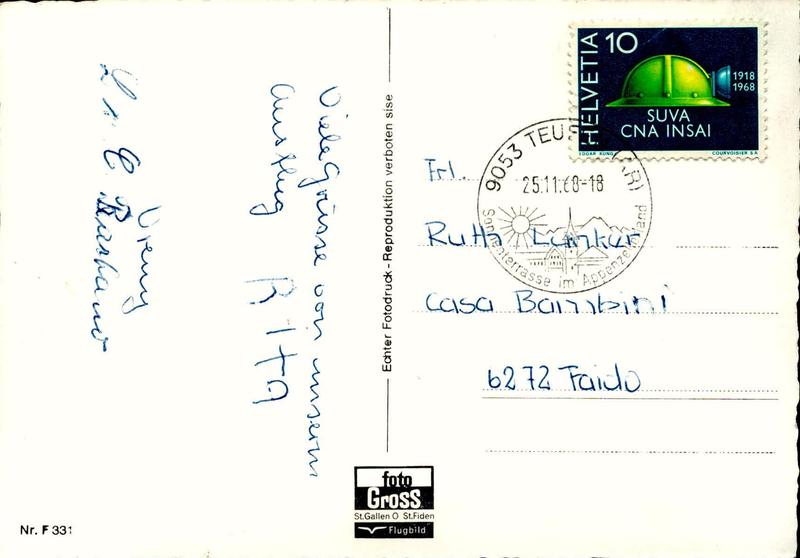 Viele Grüsse von unserm
Ausflug
Rita
Vreny
HELVETIA 10
1918
1968
SUVA
CNA INSAI
EDGAR KÜNG
COURVOISIER S A
9053 TEUFEN (AR)
25.11.68-18
Sonnenterrasse im Appenzellerland
Frl.
Ruth Lunkur
Casa Bambini
6272 Faido
Echter Fotodruck - Reproduktion verboten sise
foto
Gross
St.Gallen O St.Fiden
Flugbild
Nr. F 331